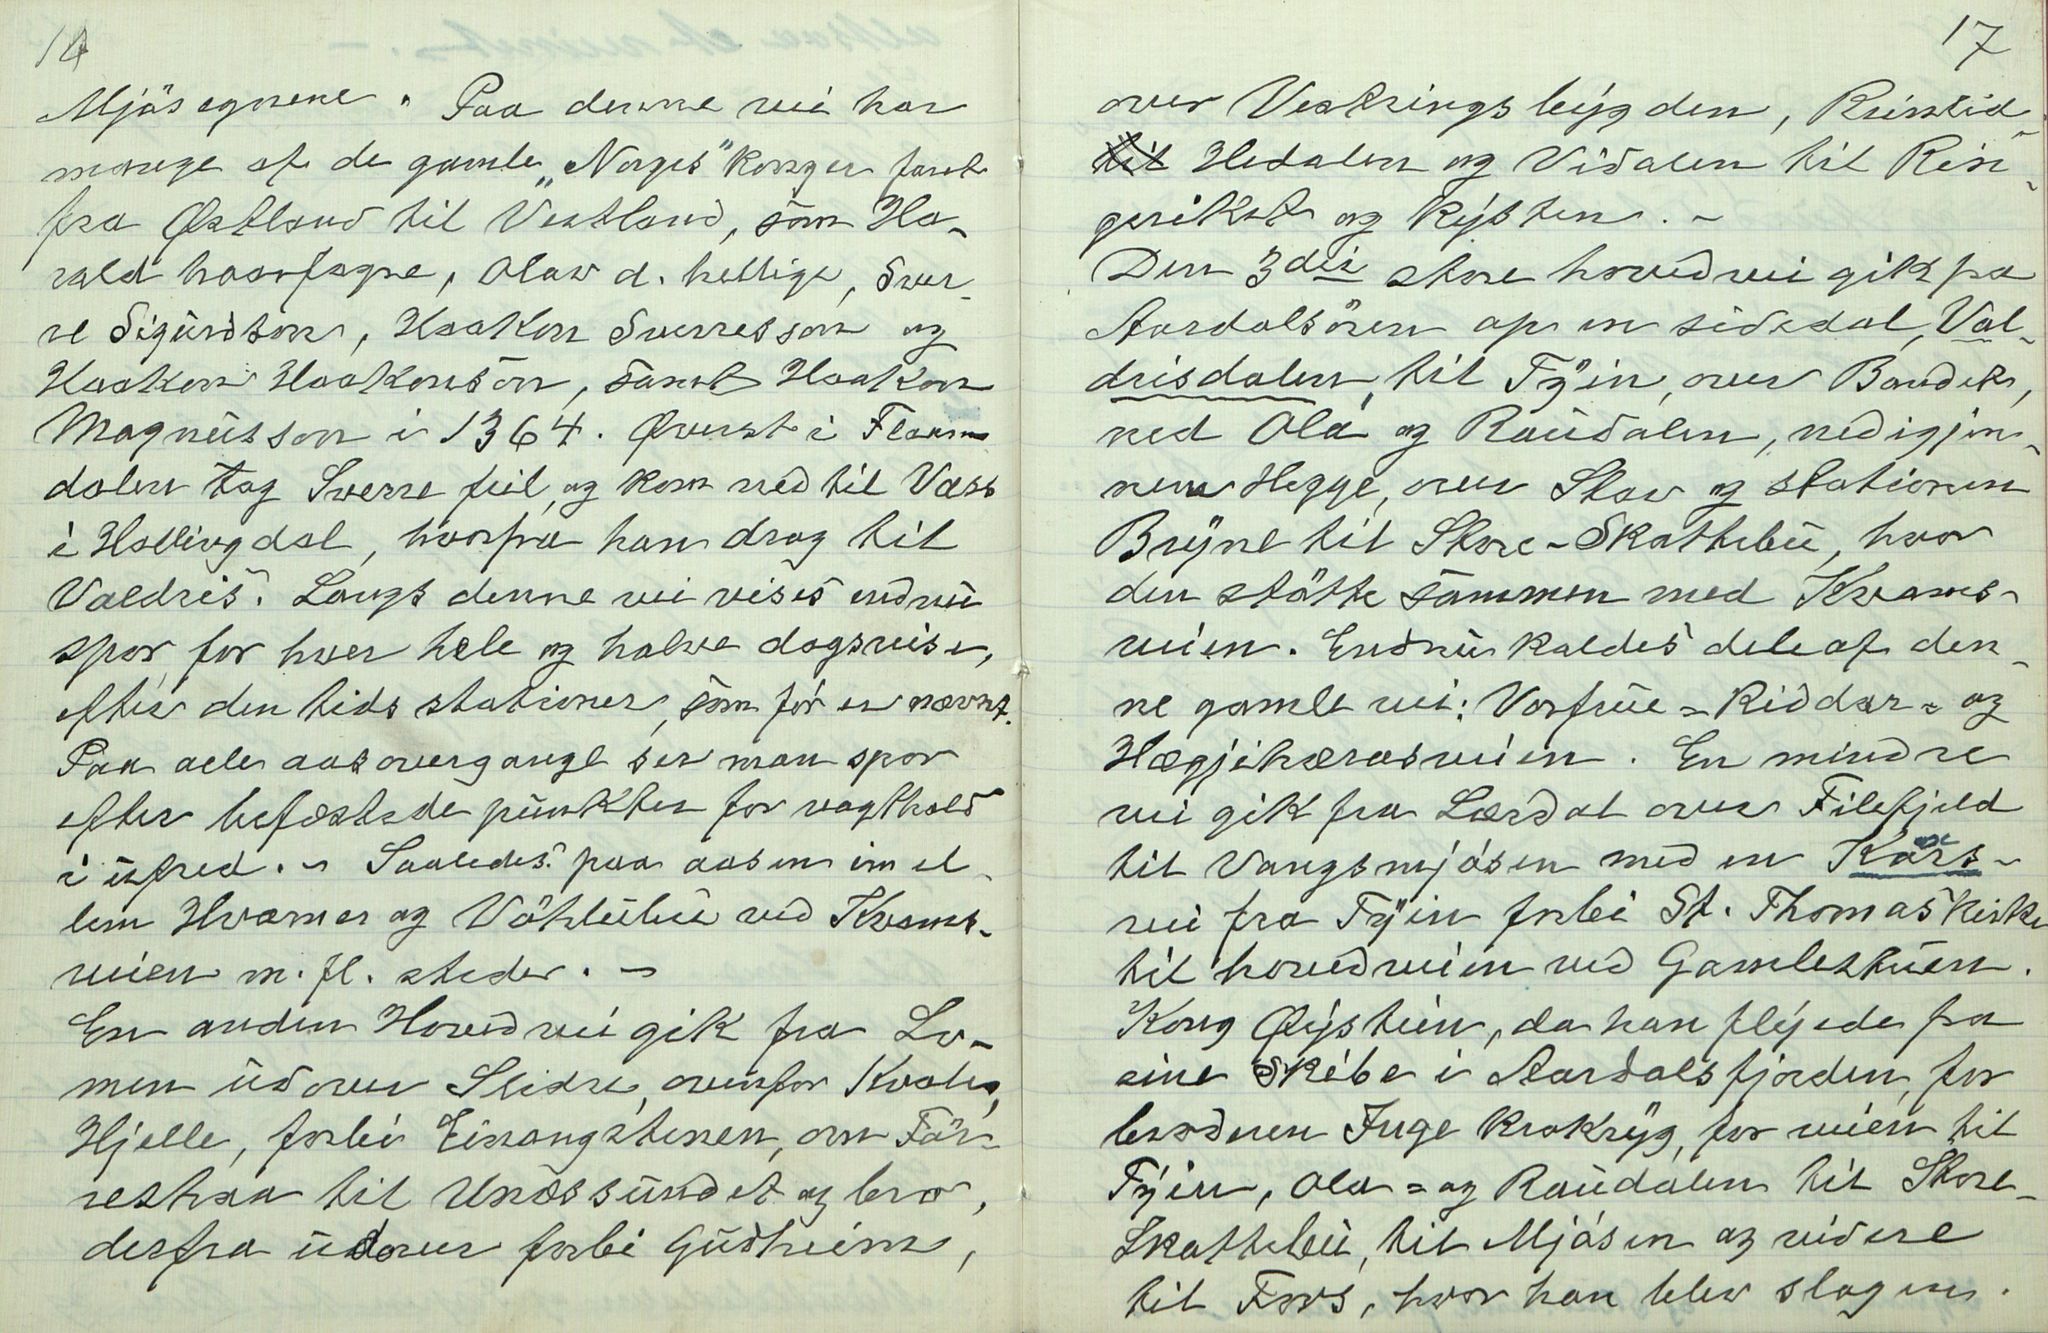 14
Mjösegnene. Paa denne vei har
mange af de gamle „Norges" konger faret
fra Østland til Vestland, som Ha-
rald haarfagre, Olav d. hellige, Sver-
re Sigurdson, Haakon Sverresson og
Haakon Haakonson, samt Haakon
Magnusson i 1364. Øverst i Flaams
dalen tog Sverre feil, og kom ned til Vass
i Hallingdal, hvorfra han drog til
Valdres. Langs denne vei vises endnu
spor, for hver hele og halve dagsreise,
efter den tids stationer, som før er nævnt.
Paa alle aasovergange ser man spor
efter befæstede punkter for vagthold
i ufred. - Saaledes paa aasen imel-
lem Hvarner og Vöhlubu ved Kvams-
veien m. fl. steder. -
En anden Hovedvei gik fra Lo-
men udover Slidre, ovenfor Kvale,
Hjelle, forbi Einangstenen, om För-
restraa til Unössundet og bro,
derfra udover forbi Gudheim,
17
over Vestringsbygden, Reinlid
til Hedalen og Vidalen til Rin-
geriket og kysten. -
Den 3die store hovedvei gik fra
Aardalsören op en sidedal, Val-
drisdalen, til Tyin, over Bandet,
ned Ola og Raudalen, ned igjen-
nem Hegge, over Skav og stationen
Bryne til Store-Skattebu, hvor
den stötte sammen med Kvams-
veien. Endnu kaldes dele af den-
ne gamle vei: Vorfrue = Riddar = og
Hægjekærasveien. En mindre
vei gik fra Lærdal over Filefjeld
til Vangsmjösen med en Kors-
vei fra Tyin forbi St. Thomaskirke
til hovedveien ved Gamlestuen.
Kong Øystein, da han flyede fra
sine Skibe i Aardalsfjorden, for
brodren Inge Krokryg, for veien til
Tyin, Ola = og Raudalen til Store-
Skattebu, til Mjösen og videre
til Fors, hvor han blev slagen.